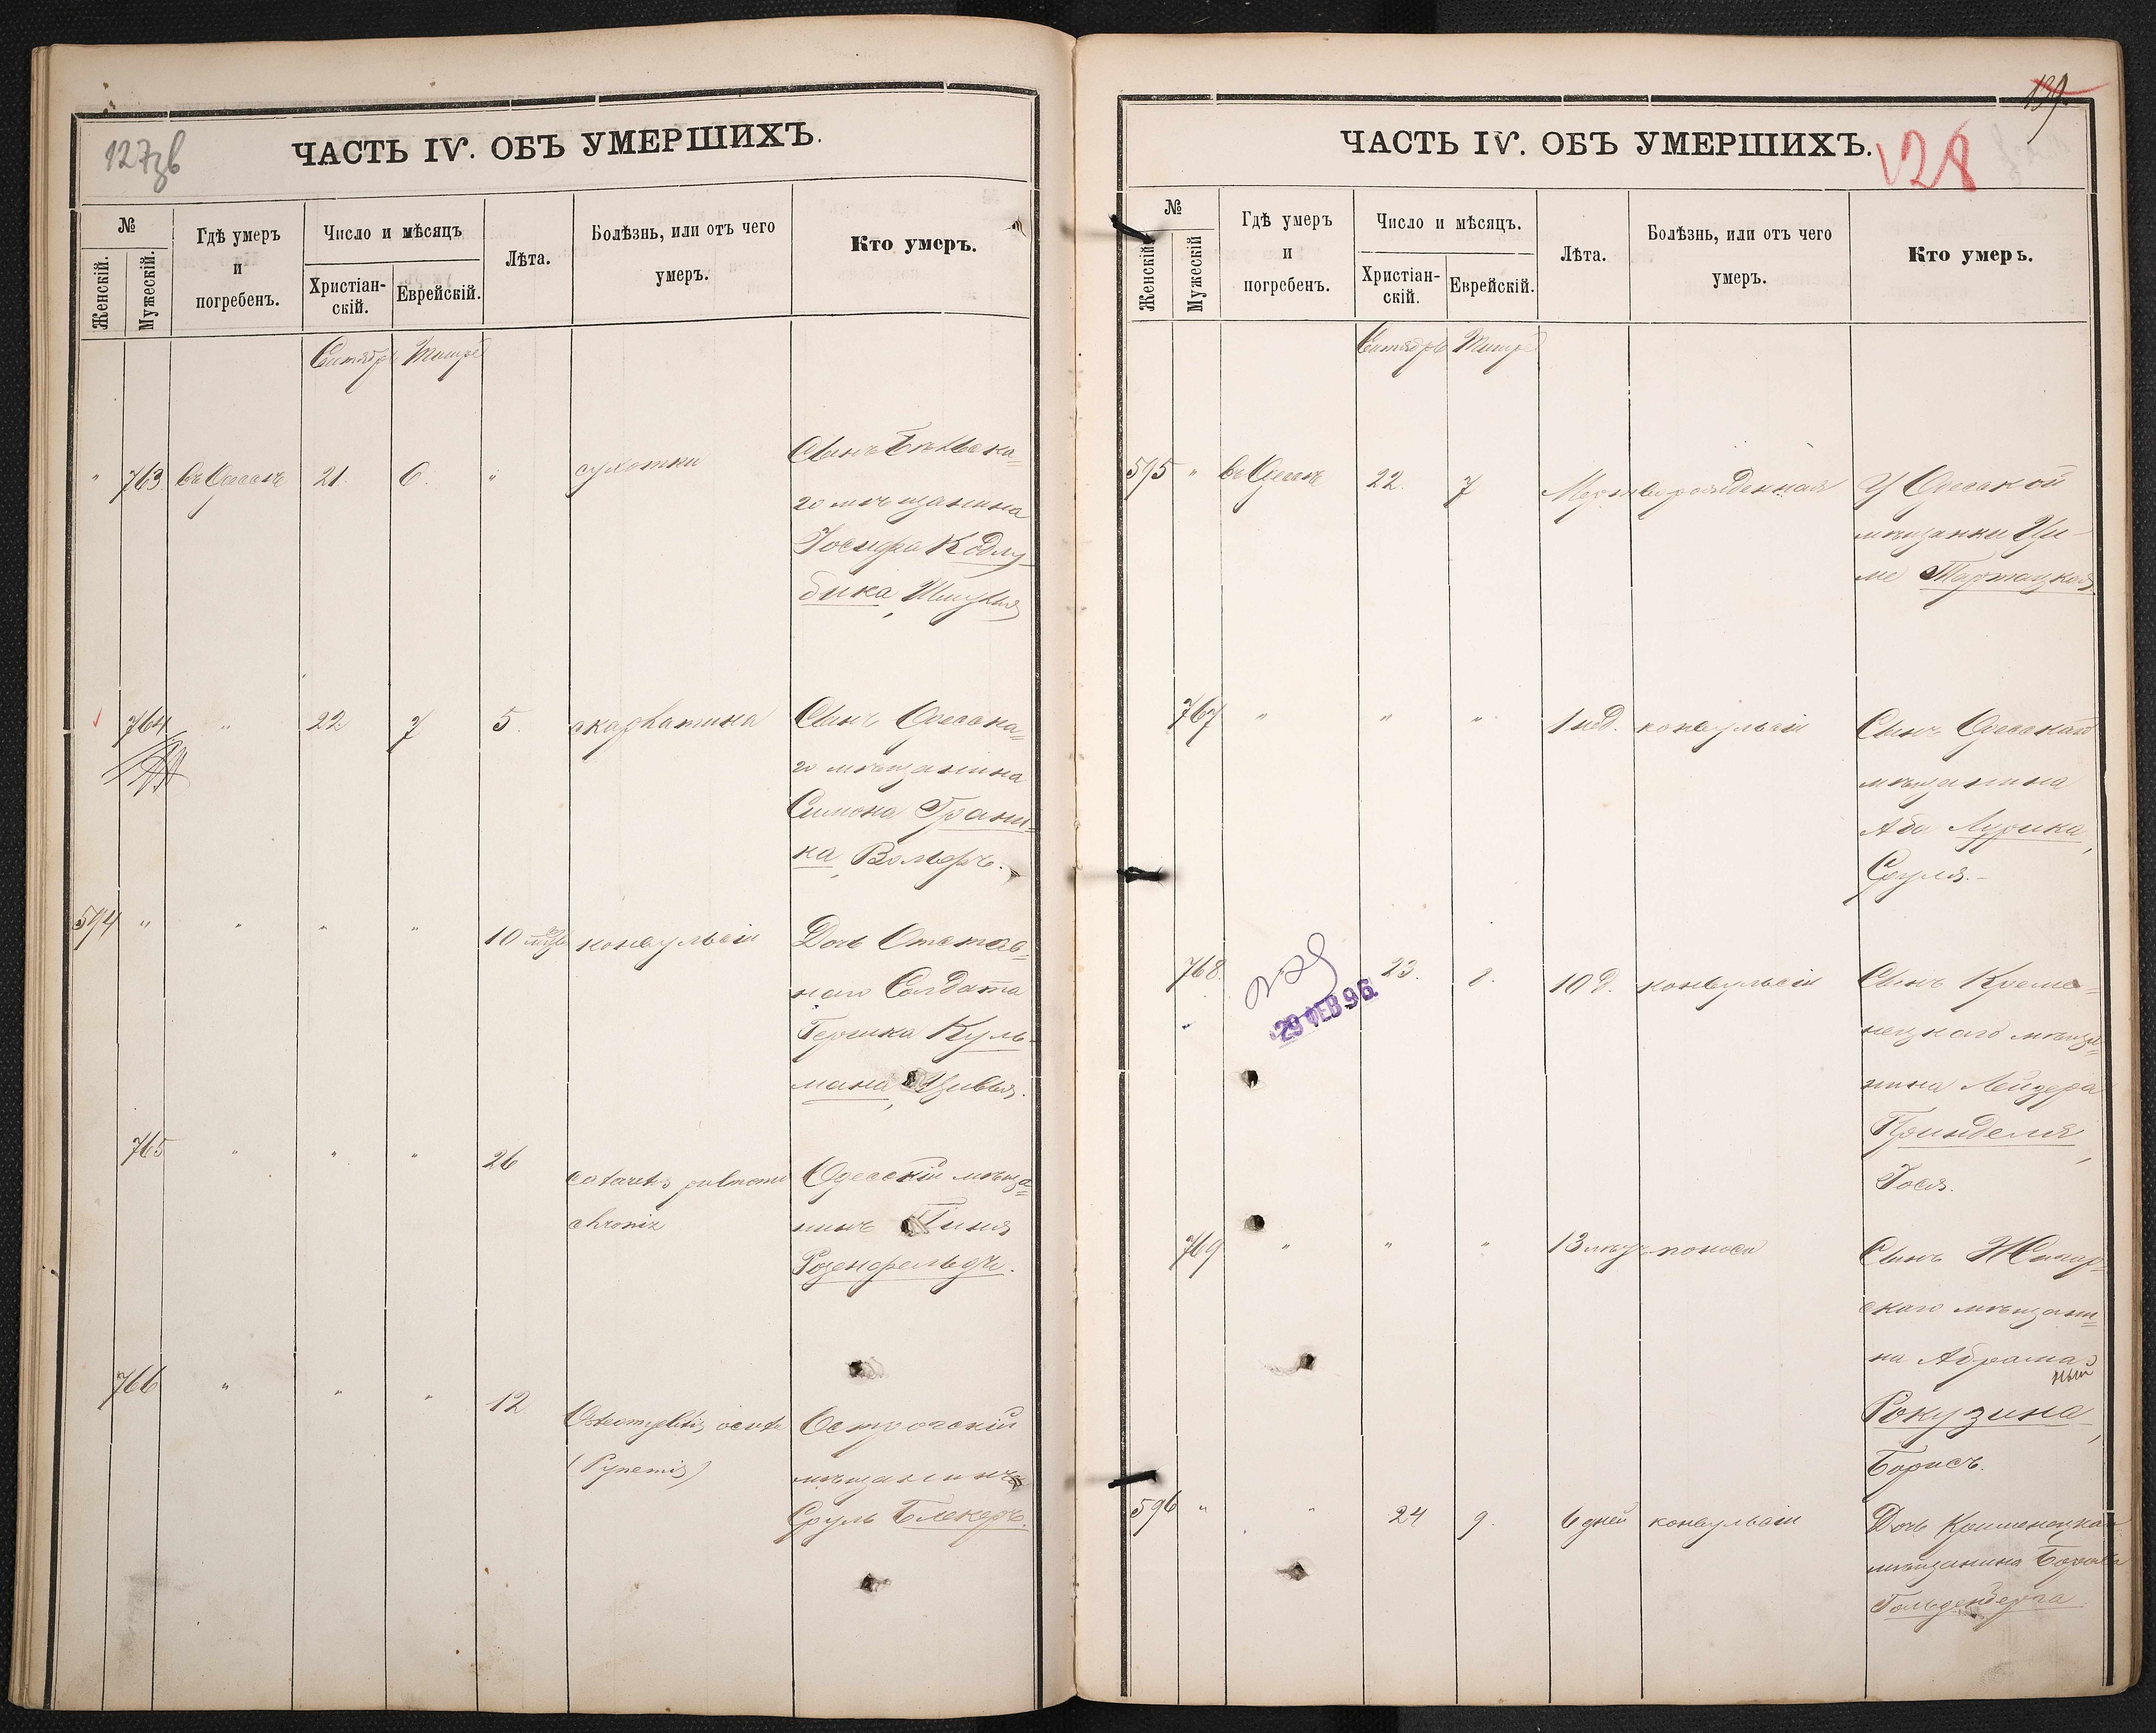 127зв
ЧАСТЬ IV. ОБЪ УМЕРШИХЪ.
№
Женскій.
Мужескій.
Гдѣ умеръ
и
погребенъ.
Число и мѣсяцъ
Христіан-
скій.
Еврейскій.
Лѣта.
Болѣзнь, или отъ чего
умеръ.
Кто умеръ.
Сентябрь Тишре
" 763. въ Одессѣ 21. 6. " сухотки
Сынъ
го мѣщанина
Іосифа Кодлу-
бика,
764 " 22 7 5. скарлатина
Сынъ Одесска=
го мѣщанина
Симона Грани-
ка, Вольфъ.
594 " " " " 10 конвульсіи
Дочь Отстав=
наго Солдата
Гершка Куль-
мана, Цивья.
765 " " " 26 catarrhs pulmonu
chronix
Одесскій мѣща=
нинъ Пиня
Розенфельдъ.
766 " " " 12 Osteomyelitis acuta
(Pyaemis)
Острогскій
мѣщанинъ
Сруль Блекеръ.
139.
ЧАСТЬ IV. ОБЪ УМЕРШИХЪ.
128
№
Женскій
Мужескій
Гдѣ умеръ
и
погребенъ.
Число и мѣсяцъ.
Христіан-
скій.
Еврейскій.
Лѣта.
Болѣзнь, или отъ чего
умеръ.
Кто умеръ.
Сентябрь Тишре
595 " въ Одессѣ 22. 7 Мертворожденная
У Одесской
мѣщанки Ци-
ме Тартацкой
767 " " " 1 нед. конвульсіи
Сынъ Одесскаго
мѣщанина
Аба Лурика,
Сруля.-
768. 23. 8. 10 д. конвульсіи
29 ФЕВ 96
Сынъ Креме=
нецкаго мѣща=
нина Лейзера
Принделя,
Іося.
769 " " " 13 мѣс. поноса
Сынъ
скаго мѣщани=
на Абрама
ный
Рокузина,
Борисъ.
596 " " 24 9. 6 дней конвульсіи
Дочь Кременецкаго
мѣщанина
Гольденберга